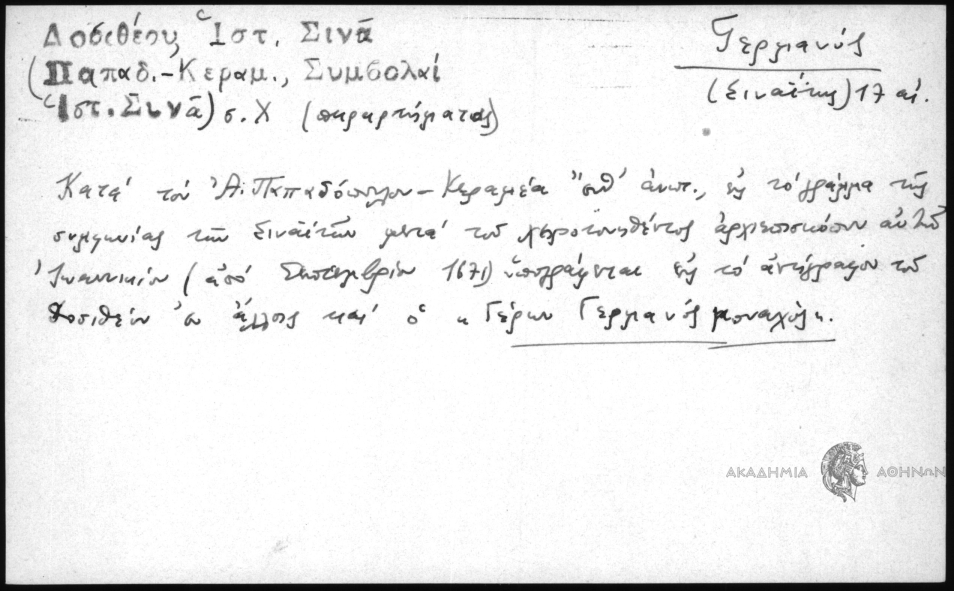 Δοσιθέου, Ἱστ. Σινᾶ
(Παπαδ.-Κεραμ., Συμβολαί
Ἱστ. Σινᾶ) σ. Χ (παραρτήματος)
Γερμανός
(Σιναΐτης) 17 αἰ.
Κατά τόν Ἀ. Παπαδόπουλον-Κεραμέα ἔνθ' ἀνωτ., εἰς τό γράμμα τῆς
συμφωνίας τῶν Σιναϊτῶν μετά τοῦ χειροτονηθέντος ἀρχιεπισκόπου αὐτῶν
Ἰωαννικίου (ἀπό Σεπτεμβρίου 1671) ὑπογράφεται εἰς τό ἀντίγραφον τοῦ
Δοσιθέου ἐν ἄλλοις καί ὁ «Γέρων Γερμανός μοναχός».
ΑΚΑΔΗΜΙΑ ΑΘΗΝΩΝ